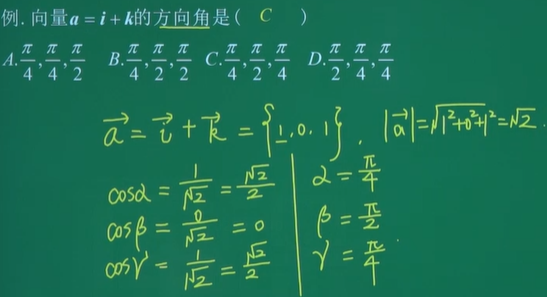 例. 向量a = i + k的方向角是( C )
A. π/4, π/4, π/2 B. π/4, π/2, π/2 C. π/4, π/2, π/4 D. π/2, π/4, π/4
a⃗ = i⃗ + k⃗ = {1, 0, 1}, |a⃗| = √(1²+0²+1²) = √2.
cosα = 1/√2 = √2/2 α = π/4
cosβ = 0/√2 = 0 β = π/2
cosγ = 1/√2 = √2/2 γ = π/4.